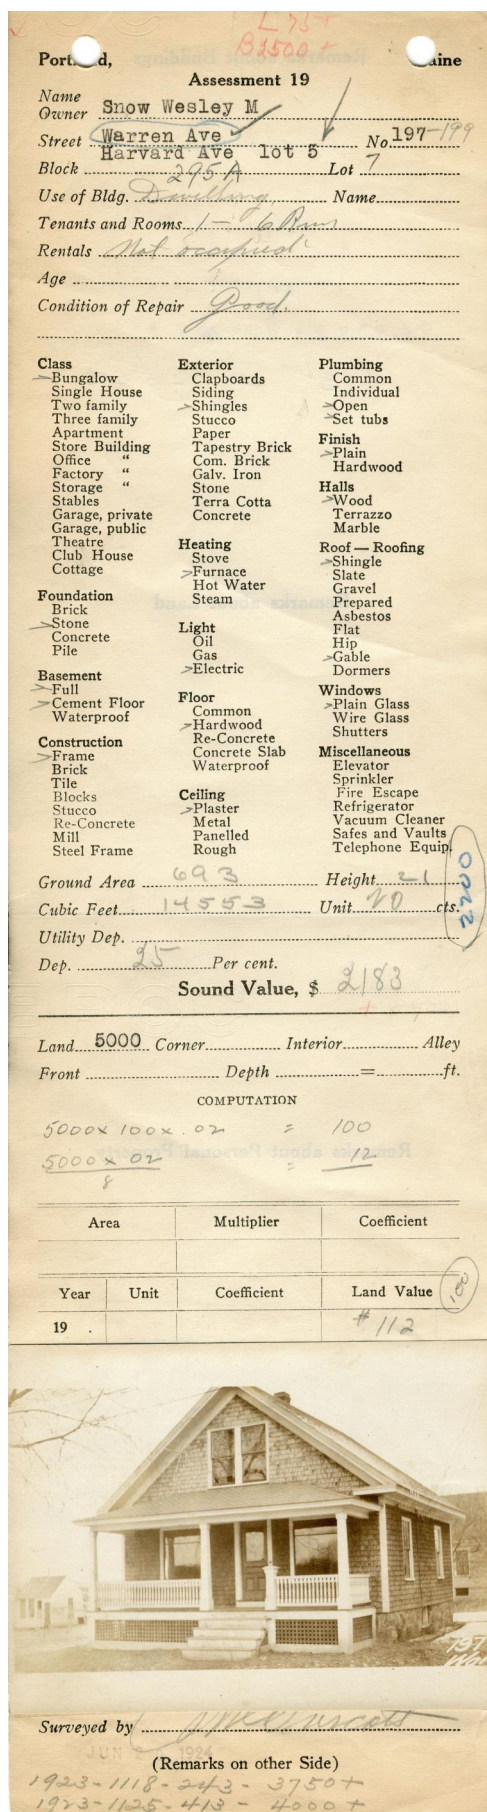 L 75+
B2500 +
Port d, aine
Assessment 19
Name
Owner Snow Wesley M
Street Warren Ave No. 197-199
Harvard Ave lot 5
Block 295 A Lot 7
Use of Bldg. Dwelling Name
Tenants and Rooms 1 — 6 Rms
Rentals Not occupied
Age
Condition of Repair Good.
Class
Bungalow
Single House
Two family
Three family
Apartment
Store Building
Office "
Factory "
Storage "
Stables
Garage, private
Garage, public
Theatre
Club House
Cottage
Foundation
Brick
Stone
Concrete
Pile
Basement
Full
Cement Floor
Waterproof
Construction
Frame
Brick
Tile
Blocks
Stucco
Re-Concrete
Mill
Steel Frame
Exterior
Clapboards
Siding
Shingles
Stucco
Paper
Tapestry Brick
Com. Brick
Galv. Iron
Stone
Terra Cotta
Concrete
Heating
Stove
Furnace
Hot Water
Steam
Light
Oil
Gas
Electric
Floor
Common
Hardwood
Re-Concrete
Concrete Slab
Waterproof
Ceiling
Plaster
Metal
Panelled
Rough
Plumbing
Common
Individual
Open
Set tubs
Finish
Plain
Hardwood
Halls
Wood
Terrazzo
Marble
Roof — Roofing
Shingle
Slate
Gravel
Prepared
Asbestos
Flat
Hip
Gable
Dormers
Windows
Plain Glass
Wire Glass
Shutters
Miscellaneous
Elevator
Sprinkler
Fire Escape
Refrigerator
Vacuum Cleaner
Safes and Vaults
Telephone Equip.
Ground Area 693 Height 21
Cubic Feet 14553 Unit 20 cts.
2200
Utility Dep.
Dep. 25 Per cent.
Sound Value, $ 2183
Land 5000 Corner Interior Alley
Front Depth = ft.
COMPUTATION
5000 x 100 x .02 = 100
5000 x 02 = 12
8
Area Multiplier Coefficient
Year Unit Coefficient Land Value
100
19 . # 112
197
Surveyed by
JUN 1924
(Remarks on other Side)
1923-1118-243- 3750+
1923-1125-413- 4000+